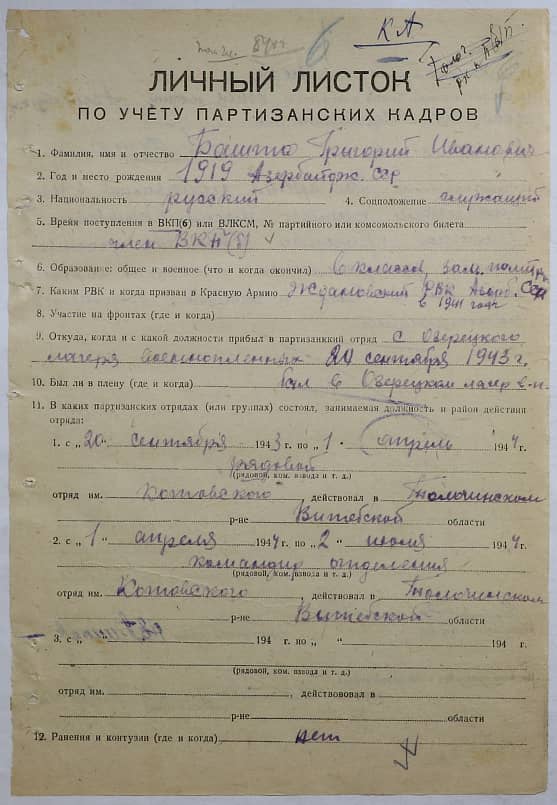 6
КА
Толоч.
ЛИЧНЫЙ ЛИСТОК
ПО УЧЕТУ ПАРТИЗАНСКИХ КАДРОВ
1. Фамилия, имя и отчество Башта Григорий Иванович
2. Год и место рождения 1919 Азербайдж. ССР
3. Национальность русский 4. Соцположение служащий
5. Время поступления в ВКП(б) или ВЛКСМ, № партийного или комсомольского билета
член ВКП(б)
6. Образование: общее и военное (что и когда окончил) 6 классов, зам. политр.
7. Каким РВК и когда призван в Красную Армию Ждановский РВК Азерб. ССР
в 1941 году
8. Участие на фронтах (где и когда)
9. Откуда, когда и с какой должности прибыл в партизанский отряд с Озерецкого
лагеря военнопленных 20 сентября 1943 г.
10. Был ли в плену (где и когда) был в Озерецком лагер в-п.
11. В каких партизанских отрядах (или группах) состоял, занимаемая должность и район действия
отряда:
1. с „20 сентября 1943 г. по „1 " апрель 1944 г.
рядовой
(рядовой, ком. взвода и т. д.)
отряд им. Котовского, действовал в Толочинском
р-не Витебской области
2. с „1 " апреля 1944 г. по „2 июля 1944 г.
командир отделения
(рядовой, ком. взвода и т. д.)
отряд им. Котовского, действовал в Толочинском
р-не Витебской области
3. с „ " 194 г. по „ " 194 г.
(рядовой, ком. взвода и т. д.)
отряд им. , действововал в
р-не области
12. Ранения и контузии (где и когда) нет